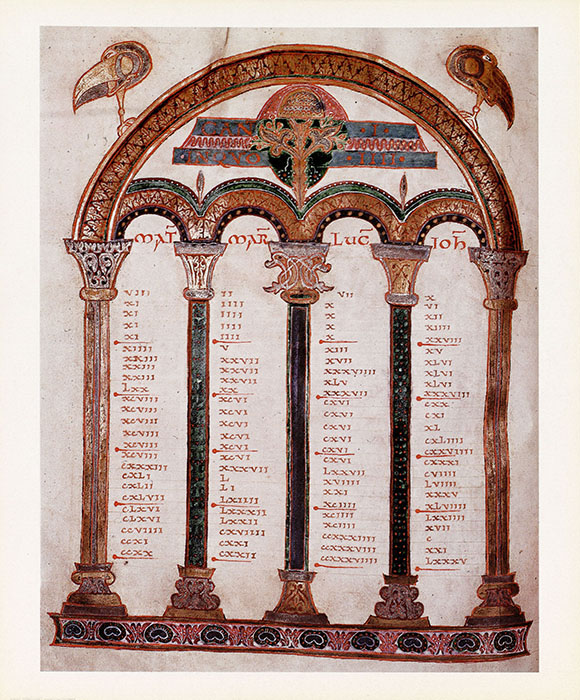 MAT
VIII
XI
XI
XI
XI
XIIII
XXIII
XXIII
XXIII
LXX
XCVIII
XCVIII
XCVIII
XCVIII
XCVIII
CXXXIII
CXLI
CXLII
CXLVII
CLXVI
CLXVI
CCVIIII
CCXI
CCXX
MAR
II
IIII
IIII
IIII
IIII
V
XXVII
XXVII
XXVII
XX
XCVI
XCVI
XCVI
XCVI
XCVI
XXXVII
L
L
LXIIII
LXXXII
LXXII
CXVIII
CXXI
CXXII
LUC
VII
X
X
X
X
XIII
XVII
XXXVIIII
XLV
XXXVII
CXVI
CXVI
CXVI
CXVI
CXVI
LXXVII
LVIIII
XXI
XCIIII
XCIIII
XCIIII
CCXXXIIII
CCXXXVIII
CCXXXVIII
IOH
X
VI
XII
XIIII
XXVIII
XV
XLVI
XLVI
XLVI
XXXVIII
CXX
CXI
XL
CXLIIII
CXXVIIII
CXXXI
CVIII
LVIII
XXXV
XLVIIII
LXXIIII
XVII
C
XXI
LXXXV